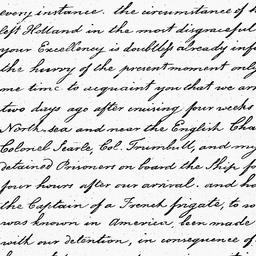 every instance. the circumstance of h
left Holland in the most disgraceful
your Excellency is doubtless already inf
the hurry of the present moment only
me time to acquaint you that we arr
two days ago after cruising four weeks
North sea and near the English Cha
Colonel Searle, Col. Trumbull, and my
detained Prisoners on board the Ship f
four hours after our arrival. and ha
the Captain of a French frigate, to w
was known in America, been made
with our detention, in consequence of